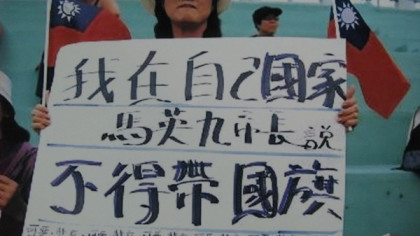 我在自己國家
馬英九市長說
不得帶國旗